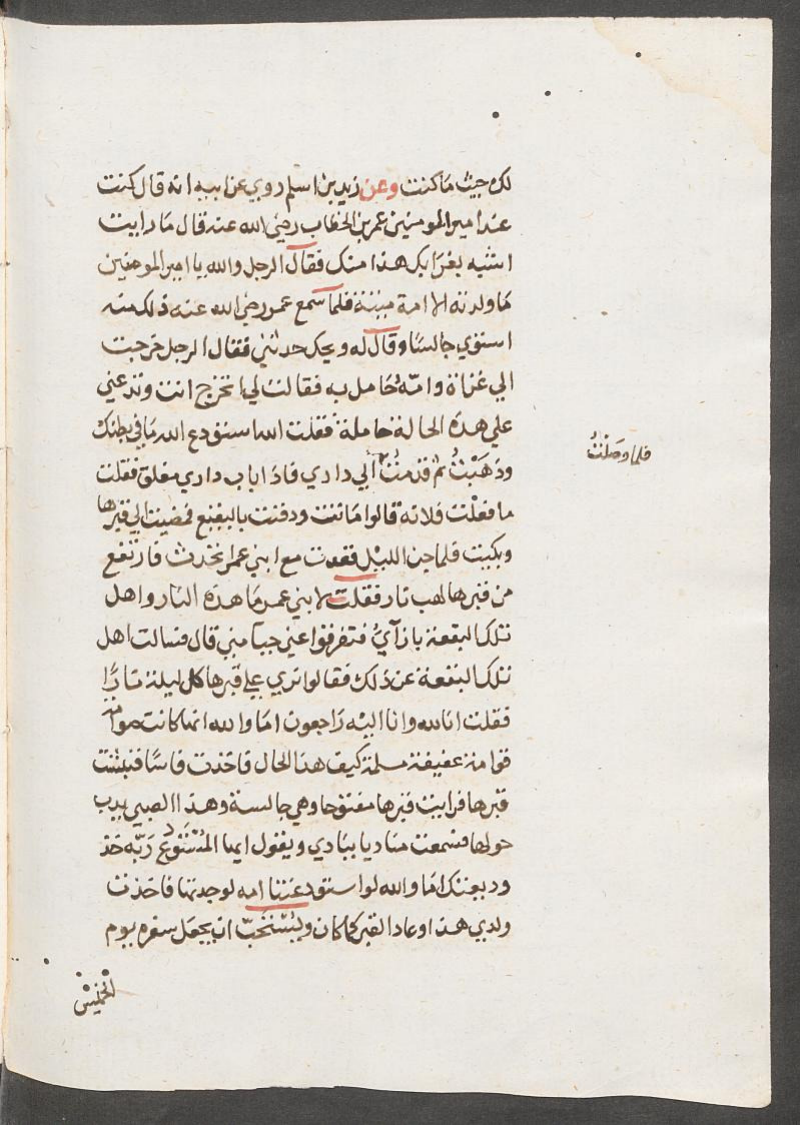 لك حيث ما كنت وعن زيد بن اسلم روي عن ابيه انه قال كنت
عند امير المومنين عمر بن الخطاب رضي الله عنه قال ما رايت
اشبه بغرابك هذا منك فقال الرجل والله يا امير المومنين
ما ولدته الا امة ميتة فلما سمع عمر رضي الله عنه ذلك منه
استوي جالسا وقال له ويحك حدثني فقال الرجل خرجت
الي غزاة وامّه حَامل به فقالت لي اتخرج انت وتدعني
علي هذه الحالة حاملة فقلت الله استودع الله ما في بطنك
وذهَبْتُ ثم قدمتُ الي داري فاذا باب داري مغلق فقلت
ما فعلت فلانه قالوا ماتت ودفنت بالبقيع فمضيت الي قبرها
وبكيت فلما جن الليل فقعدت مع ابني عمر نتحدث فارتفع
من قبرها لهب نار فقلت لابني عمر ما هذه النار واهل
تلك البقعة بازآيُ فتفرقوا عني حيا مني قال فسالت اهل
تلك البقعة عن ذلك فقالوا نري علي قبرها كل ليلة نارًا
فقلت انا لله وانا اليه راجعون اما والله انها كانت صوامه
قوامة عفيفة مسلمة كيف هذا الحال فاخذت فاسا فنبشت
قبرها فرايت قبرها مفتوحا وهي جالسة وهذا الصبي يدب
حولها فسمعت مناديا ينادي ويقول ايها المُسْتَودِعُ ربّه خذ
وديعتك اما والله لو استودعتنا امه لوجدتها فاخذت
ولدي هذا وعاد القبر كما كان ويُسْتَحَبّ ان يجعل سفره يوم
الخميس
فلما وصَلْتُ